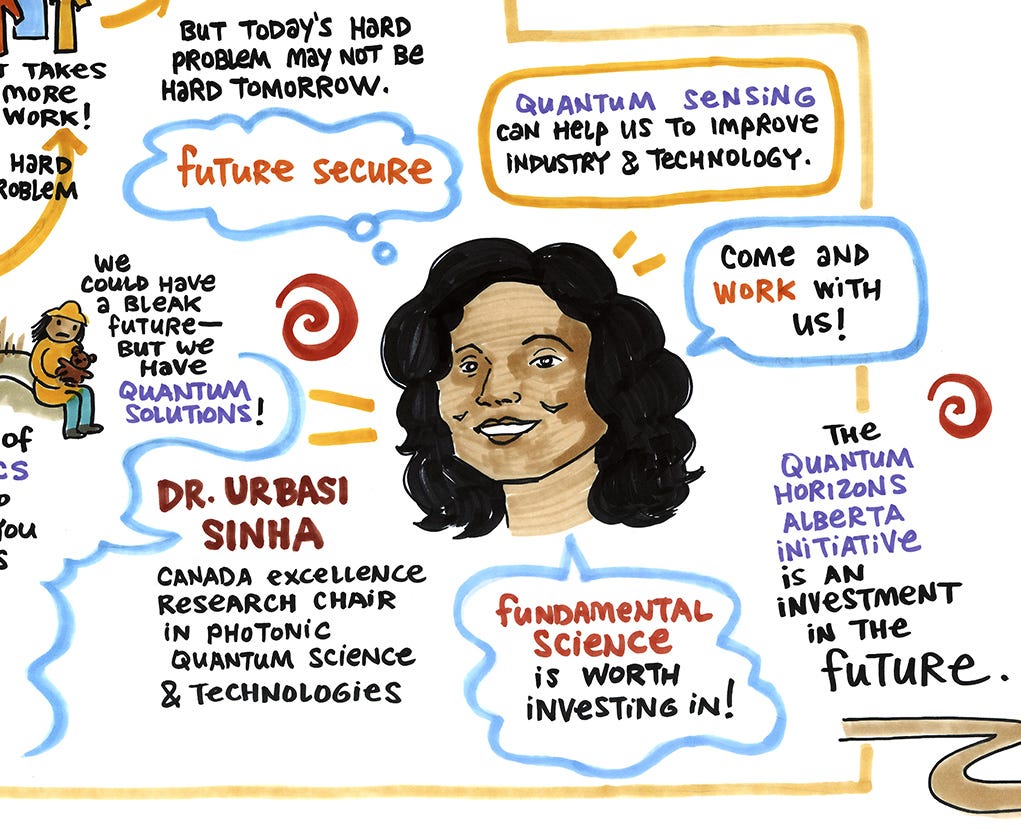 BUT TODAY'S HARD
PROBLEM MAY NOT BE
HARD TOMORROW.
TAKES
MORE
WORK!
HARD
FUTURE SECURE
QUANTUM SENSING
CAN HELP US TO IMPROVE
INDUSTRY & TECHNOLOGY.
COME AND
WORK WITH
US!
WE
COULD HAVE
A BLEAK
FUTURE—
BUT WE
HAVE
QUANTUM
SOLUTIONS!
OF
DR. URBASI
SINHA
CANADA EXCELLENCE
RESEARCH CHAIR
IN PHOTONIC
QUANTUM SCIENCE
& TECHNOLOGIES
FUNDAMENTAL
SCIENCE
IS WORTH
INVESTING IN!
THE
QUANTUM
HORIZONS
ALBERTA
INITIATIVE
IS AN
INVESTMENT
IN THE
FUTURE.